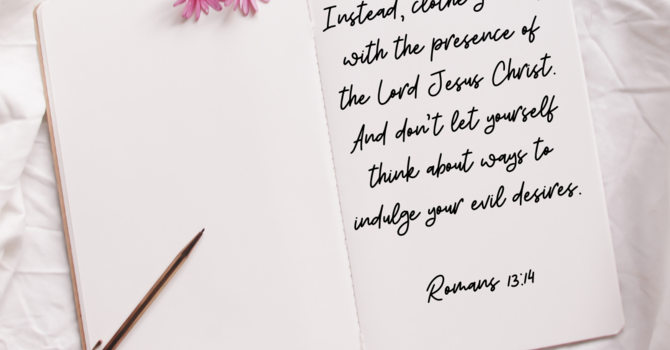 Instead, clothe
with the presence of
the Lord Jesus Christ.
And don't let yourself
think about ways to
indulge your evil desires.
Romans 13:14